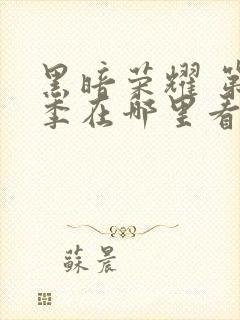 黑暗荣耀 第
季在哪里看
蘇晨